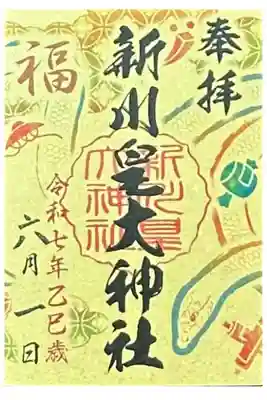 奉拝
新川皇大神社
新川皇大神社
福
令和七年乙巳歳
六月一日